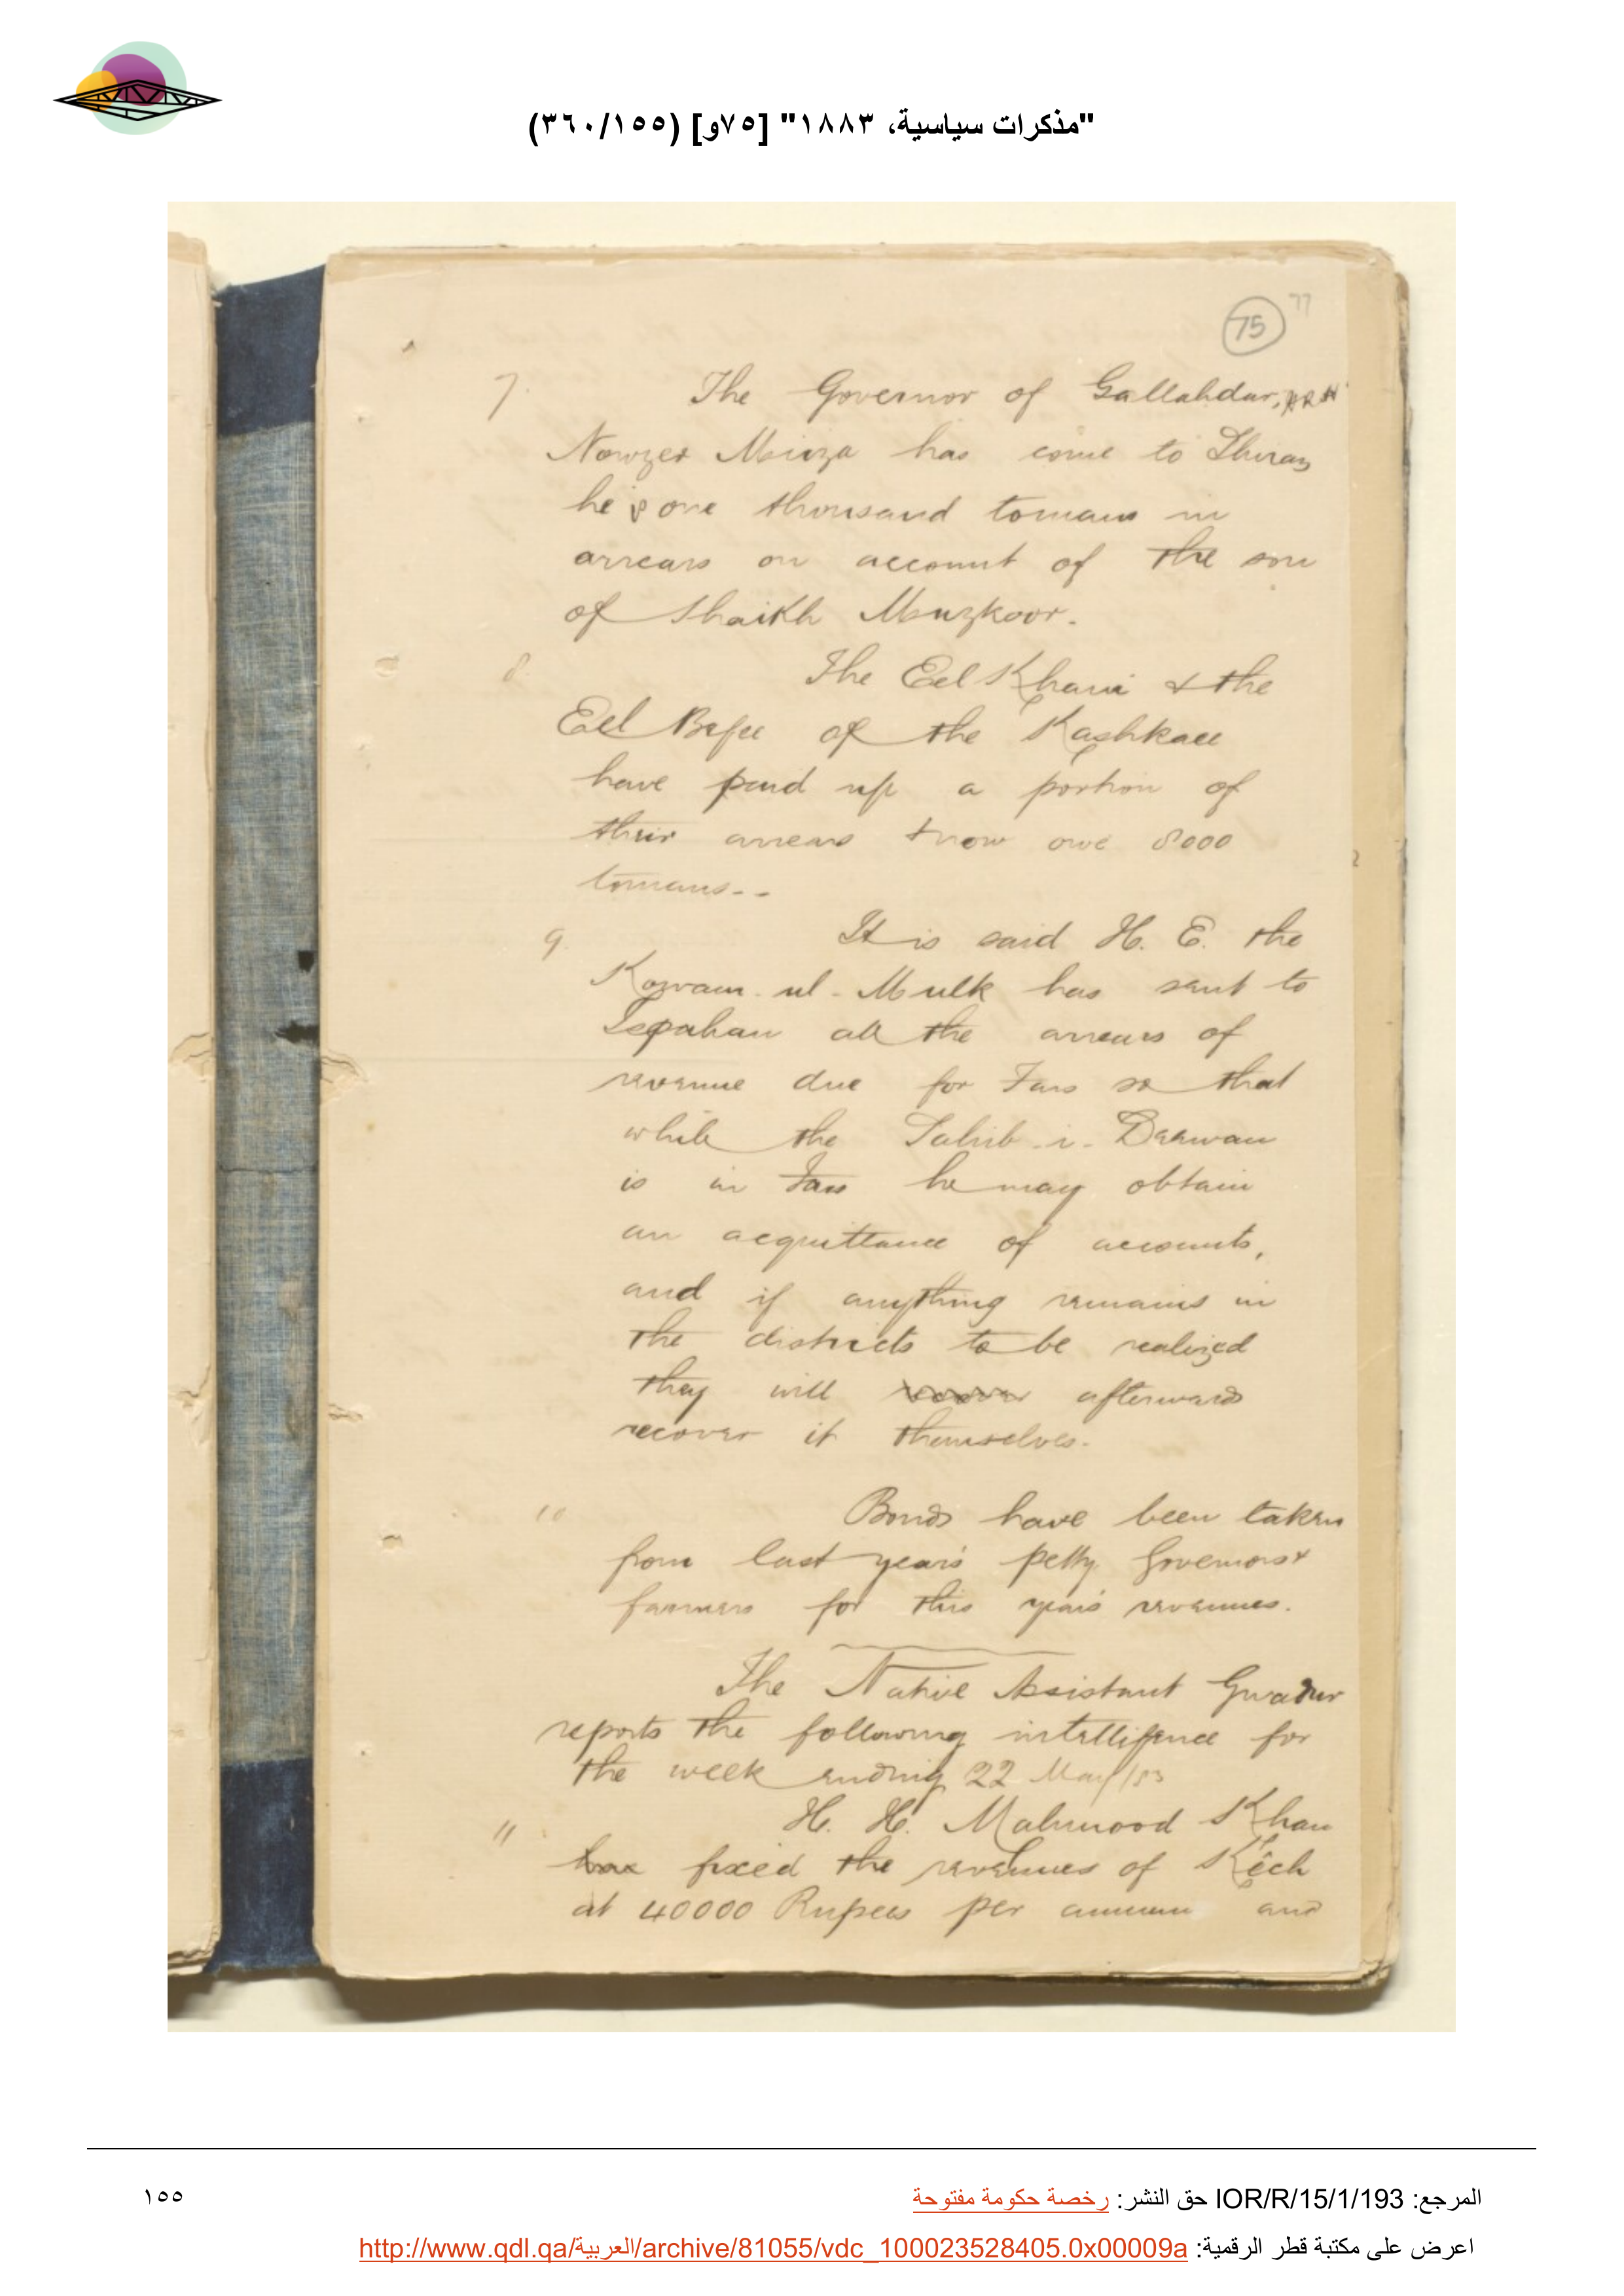 "مذكرات سياسية، ١٨٨٣" [٧٥و] (٣٦٠/١٥٥)
77
75
7. The Governor of Gallahdar,
Nowzer Mirza has come to Shiraz
he is one thousand tomans in
arrears on account of the son
of Shaikh Muzkoor.
8. The Eel Khani & the
Eel Begee of the Kashkaee
have paid up a portion of
their arrears & now owe 8000
tomans--
9. It is said H. E. the
Kowam-ul-Mulk has sent to
Ispahan all the arrears of
revenue due for Fars so that
while the Sahib-i-Deewan
is in Fars he may obtain
an acquittance of accounts,
and if anything remains in
the districts to be realized
they will afterwards
recover it themselves.
10 Bonds have been taken
from last year's petty Governors &
farmers for this year's revenues.
The Native Assistant Gwadur
reports the following intelligence for
the week ending 22 May/83
11 H. H. Mahmood Khan
has fixed the revenues of Kêch
at 40000 Rupees per annum and
المرجع: IOR/R/15/1/193 حق النشر: رخصة حكومة مفتوحة
١٥٥
اعرض على مكتبة قطر الرقمية: http://www.qdl.qa/العربية/archive/81055/vdc_100023528405.0x00009a